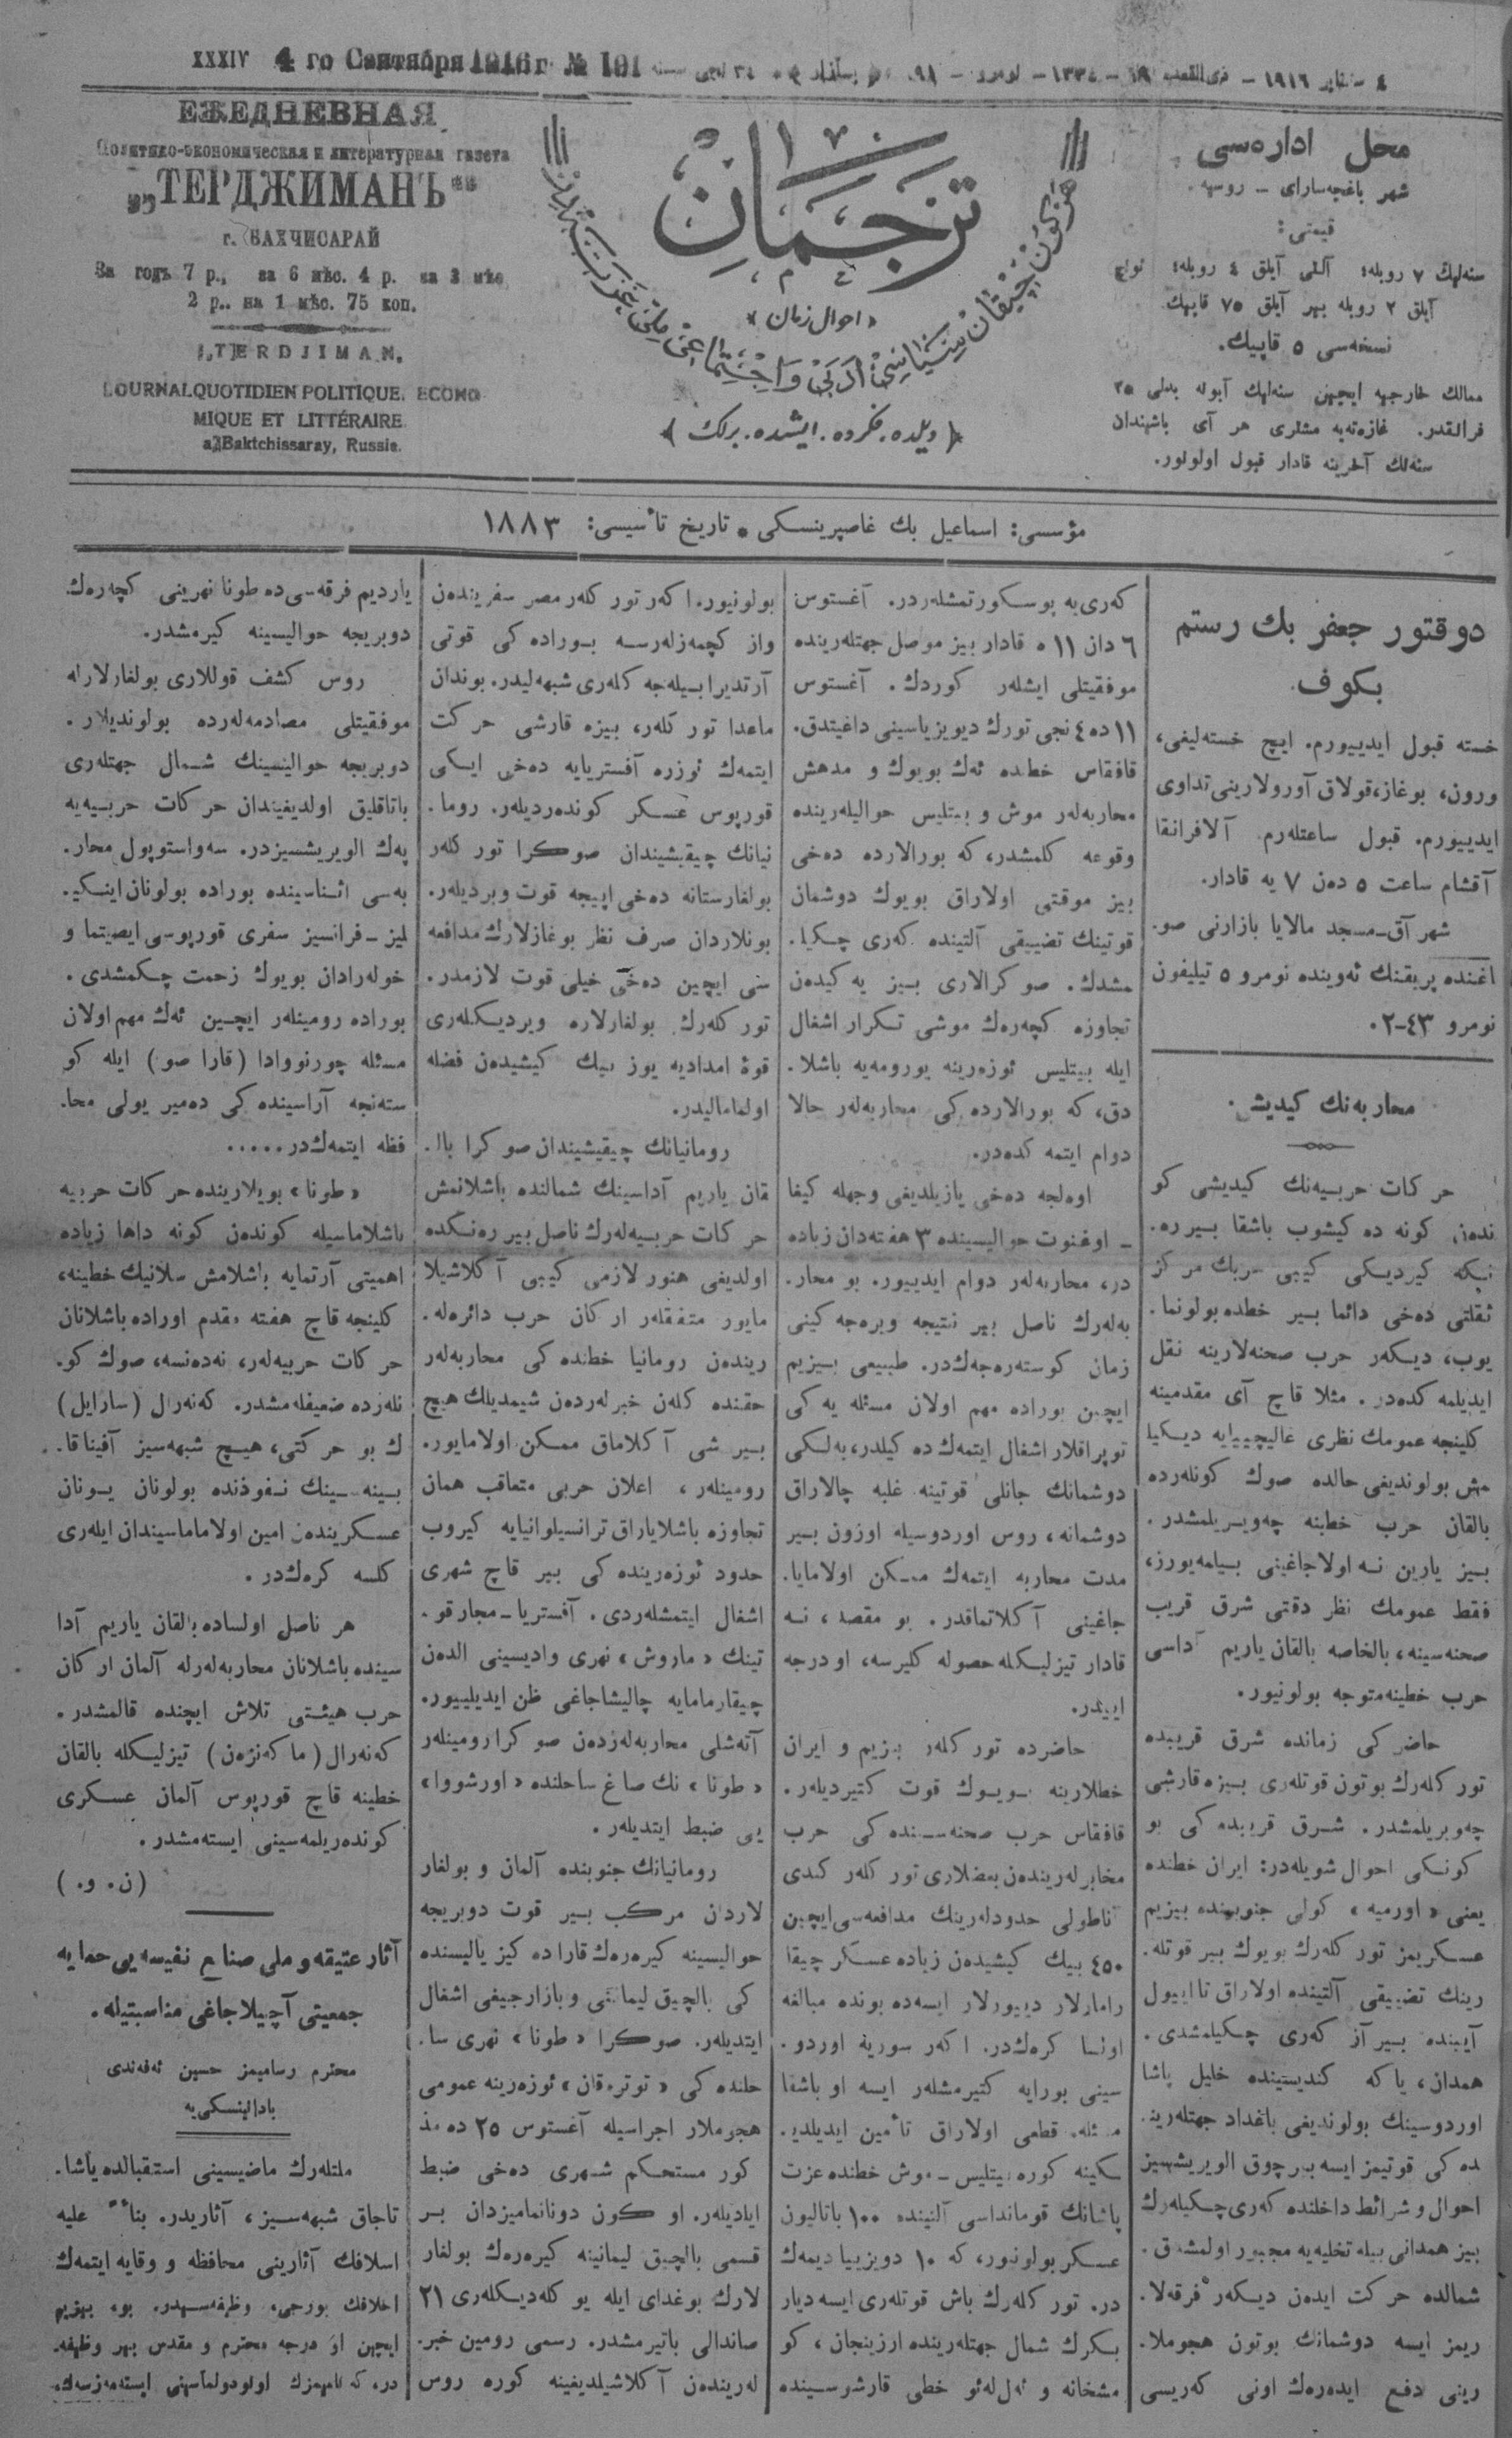 XXXIV 4 го Сентября 1916 г № 191
٤ سنتابر ١٩١٦ – ذی القعده ١٩ – ١٣٣٤ – نومرو –
ЕЖЕДНЕВНАЯ
Политико-экономическая и литературная газета
„ТЕРДЖИМАНЪ“
г. БАХЧИСАРАЙ
За годъ 7 р., на 6 мѣс. 4 р. на 3 мѣс
2 р.. на 1 мѣс. 75 коп.
„TERDJIMAN„
JOURNAL QUOTIDIEN POLITIQUE, ECONO
MIQUE ET LITTÉRAIRE.
a Baktchissaray, Russie.
ترجمان
«احوال زمان»
هر كون چیقان سیاسی، ادبی و اجتماعی ملی غزت
(دیلده. فكرده. ایشده. برلك)
محل اداره‌سی
شهر باغچه‌سارای – روسیه.
قیمتی:
سنه‌لیك ٧ روبله؛ آلتی آیلق ٤ روبله؛ اوچ
آیلق ٢ روبله بیر آیلق ٧٥ قاپیك.
نسخه‌سی ٥ قاپیك.
ممالك خارجیه ایچین سنه‌لیك آبونه بدلی ٢٥
فرانقدر. غازه‌ته‌یه مشتری هر آی باشیندان
سنه‌نك آخرینه قادار قبول اولونور.
مؤسسی: اسماعیل بك غاصپرینسكی • تاریخ تأسیسی: ١٨٨٣
دوقتور جعفر بك رستم
بكوف
خسته قبول ایدییورم. ایچ خسته‌لیغی،
ورون، بوغاز، قولاق آورولارینی تداوی
ایدییورم. قبول ساعتله‌رم آلافرانقا
آقشام ساعت ٥ ده‌ن ٧ یه قادار.
شهر آق–مسجد مالایا بازارنی صو.
اغنده پریقنك ئه‌وینده نومرو ٥ تیلیفون
نومرو ٤٣–٢٠
محاربه‌نك كیدیشی
حركات حربیه‌نك كیدیشی كو
ندن كونه ده كیشوب باشقا بیر ره.
نكه كیردیكی كیبی حربك مركز
ثقلتی ده‌خی دائما بیر خطده بولونما.
یوب، دیكه‌ر حرب صحنه‌لارینه نقل
ایدیلمه كده‌در. مثلا قاچ آی مقدمینه
كلینجه عمومك نظری غالیچییایه دیكیا
مش بولوندیغی حالده صوك كونله‌رده
بالقان حرب خطینه چه‌ویریلمشدر.
بیز یارین نه اولاجاغینی بیلمه‌یورز،
فقط عمومك نظر دقتی شرق قریب
صحنه‌سینه، بالخاصه بالقان یاریم آداسی
حرب خطینه متوجه بولونیور.
حاضركی زمانده شرق قریبده
توركله‌رك بوتون قوتله‌ری بیزه قارشی
چه‌ویریلمشدر. شرق قریبده كی بو
كونكی احوال شویله‌در: ایران خطنده
یعنی «اورمیه» كولی جنوبنده بیزیم
عسكریمز توركله‌رك بویوك بیر قوتله.
رینك تضییقی آلتینده اولاراق تا ایپول
آیینده بیر آز كه‌ری چكیلمشدی.
همدان، یا كه كندیسینده خلیل پاشا
اوردوسینك بولوندیغی باغداد جهتله‌رینه
ده كی قوتیمز ایسه بیر چوق الویریشسیز
احوال و شرائط داخلنده كه‌ری چكیله‌رك
بیز همدانی بیله تخلیه‌یه مجبور اولمشدق.
شمالده حركت ایده‌ن دیكه‌ر فرقه‌لا.
ریمز ایسه دوشمانك بوتون هجوملا.
رینی دفع ایده‌ره‌ك اونی كه‌ریسی
كه‌ری‌یه پوسكورتمشله‌ردر. آغستوس
٦ دان ١١ ه قادار بیز موصل جهتله‌رینده
موفقیتلی ایشله‌ر كوردك. آغستوس
١١ ده ٤ نجی تورك دیویزیاسینی داغیتدق.
قافقاس خطده ئه‌ك بویوك و مدهش
محاربه‌له‌ر موش و بیتلیس حوالیله‌رینده
وقوعه كلمشدر، كه بورالارده ده‌خی
بیز موقتی اولاراق بویوك دوشمان
قوتینك تضییقی آلتینده كه‌ری چكیا.
مشدك. صوكرالاری بیز یه كیده‌ن
تجاوزه كچه‌ره‌ك موشی تكرار اشغال
ایله بیتلیس ئوزه‌رینه یورومه‌یه باشلا.
دق، كه بورالارده كی محاربه‌له‌ر حالا
دوام ایتمه كده‌در.
اوه‌لجه ده‌خی یازیلدیغی وجهله كیفا
– اوغنوت حوالیسینده ٣ هفته‌دان زیاده
در، محاربه‌له‌ر دوام ایدییور. بو محار.
به‌له‌رك ناصل بیر نتیجه ویره‌جه كینی
زمان كوستره‌جه‌كدر. طبیعی بیزیم
ایچین بوراده مهم اولان مسئله یه كی
توپراقلار اشغال ایتمه‌ك ده كیلدر، به‌لكی
دوشمانك جانلی قوتینه غلبه چالاراق
دوشمانه، روس اوردوسیله اوزون بیر
مدت محاربه ایتمه‌ك ممكن اولامایا.
جاغینی آكلاتماقدر. بو مقصد، نه
قادار تیزلیكله حصوله كلیرسه، او درجه
اییدر.
حاضرده توركله‌ر بیزیم و ایران
خطلارینه بویوك قوت كتیردیله‌ر.
قافقاس حرب صحنه‌سنده كی حرب
مخابرله‌رینده‌ن بعضلاری توركله‌ر كندی
آناطولی حدودله‌رینك مدافعه‌سی ایچین
٤٥٠ بیك كیشیده‌ن زیاده عسكر چیقا
رامازلار دییورلار ایسه‌ده بونده مبالغه
اولسا كره‌كدر. اكر سوریه اوردو.
سینی بورایه كتیرمشله‌ر ایسه او باشقا
مسئله. قطعی اولاراق تأمین ایدیلدی.
كینه كوره بیتلیس – موش خطنده عزت
پاشانك قومانداسی آلتینده ١٠٠ باتالیون
عسكر بولونیور، كه ١٠ دویزییا دیمه‌ك
در. توركله‌رك باش قوتله‌ری ایسه دیار
بكرك شمال جهتله‌رینده ارزینجان، كو
مشخانه و ئه‌ل‌له‌ئو خطی قارشوسینده
بولونیور. اكر توركله‌ر مصر سفرینده‌ن
واز كچمه‌زله‌رسه بوراده كی قوتی
آرتدیرا بیله‌جه كله‌ری شبهه‌لیدر. بوندان
ماعدا توركله‌ر، بیزه قارشی حركت
ایتمه‌ك ئوزره آفستریایه ده‌خی ایكی
قورپوس عسكر كونده‌ردیله‌ر. روما.
نیانك چیقیشیندان صوكرا توركله‌ر
بولغارستانه ده‌خی اپیجه قوت ویردیله‌ر.
بونلاردان صرف نظر بوغازلارك مدافعه
سی ایچین ده‌خی خیلی قوت لازمدر.
توركله‌رك بولغارلاره ویردیكله‌ری
قوهٔ امدادیه یوز بیك كیشیده‌ن فضله
اولمامالیدر.
رومانیانك چیقیشیندان صوكرا بال.
قان یاریم آداسینك شمالنده باشلانمش
حركات حربیه‌له‌رك ناصل بیر ره‌نكده
اولدیغی هنوز لازمی كیبی آكلاشیلا
مایور. متفقله‌ر اركان حرب دائره‌له.
رینده‌ن رومانیا خطنده كی محاربه‌له‌ر
حقنده كله‌ن خبرله‌رده‌ن شیمدیلك هیچ
بیر شی آكلاماق ممكن اولامایور.
رومینله‌ر، اعلان حربی متعاقب همان
تجاوزه باشلایاراق ترانسیلوانیایه كیروب
حدود ئوزه‌رینده كی بیر قاچ شهری
اشغال ایتمشله‌ردی. آفستریا – مجارقو.
تینك «ماروش» نهری وادیسینی الده‌ن
چیقارمامایه چالیشاجاغی ظن ایدیلییور.
آته‌شلی محاربه‌له‌رده‌ن صوكرا رومینله‌ر
«طونا» نك صاغ ساحلنده «اورشووا»
یی ضبط ایتدیله‌ر.
رومانیانك جنوبنده آلمان و بولغار
لاردان مركب بیر قوت دوبریجه
حوالیسینه كیره‌ره‌ك قاراده كیز یالیسنده
كی بالچیق لیمانی و بازارجیغی اشغال
ایتدیله‌ر. صوكرا «طونا» نهری سا.
حلنده كی «توترقان» ئوزه‌رینه عمومی
هجوملار اجراسیله آغستوس ٢٥ ده مذ
كور مستحكم شهری ده‌خی ضبط
ایلدیله‌ر. او كون دونانمامیزدان بر
قسمی بالچیق لیمانینه كیره‌ره‌ك بولغار
لارك بوغدای ایله یو كله‌دیكله‌ری ٢١
صاندالی باتیرمشدر. رسمی رومین خبر.
له‌رینده‌ن آكلاشیلدیغینه كوره روس
یاردیم فرقه‌سی ده طونا نهرینی كچه‌ره‌ك
دوبریجه حوالیسینه كیرمشدر.
روس كشف قوللاری بولغارلارله
موفقیتلی مصادمه‌له‌رده بولوندیلار.
دوبریجه حوالیسینك شمال جهتله‌ری
باتاقلیق اولدیغیندان حركات حربیه‌یه
په‌ك الویریشسیزدر. سه‌واستوپول محار.
به‌سی اثناسینده بوراده بولونان اینكی.
لیز – فرانسیز سفری قورپوسی ایصیتما و
خوله‌رادان بویوك زحمت چكمشدی.
بوراده رومینله‌ر ایچین ئه‌ك مهم اولان
مسئله چورنووادا (قارا صو) ایله كو
ستنجه آراسینده كی ده‌میر یولی محا.
فظه ایتمه‌كدر.....
«طونا» بویلارینده حركات حربیه
باشلاماسیله كونده‌ن كونه داها زیاده
اهمیتی آرتمایه باشلامش سلانیك خطینه،
كلینجه قاچ هفته مقدم اوراده باشلانان
حركات حربیه‌له‌ر، نه‌ده‌نسه، صوك كو.
نله‌رده ضعیفله‌مشدر. كه‌نه‌رال (سارایل)
ك بو حركتی، هیچ شبهه‌سیز آفینا قا.
بینه‌سینك نفوذنده بولونان یونان
عسكرینده‌ن امین اولاماماسیندان ایله‌ری
كلسه كره‌كدر.
هر ناصل اولساده بالقان یاریم آدا
سینده باشلانان محاربه‌له‌رله آلمان اركان
حرب هیئتی تلاش ایچنده قالمشدر.
كه‌نه‌رال (ماكه‌نزه‌ن) تیزلیكله بالقان
خطینه قاچ قورپوس آلمان عسكری
كونده‌ریلمه‌سینی ایسته‌مشدر.
(ن. و.)
آثار عتیقه و ملی صنایع نفیسه‌یی حمایه
جمعیتی آچیلاجاغی مناسبتیله.
محترم رسامیمز حسین ئه‌فه‌ندی
بادالینسكی‌یه
ملتله‌رك ماضیسینی استقبالده یاشا.
تاجاق شبهه‌سیز، آثاریدر. بناءً علیه
اسلافك آثارینی محافظه و وقایه ایتمه‌ك
اخلافك بورجی، وظیفه‌سیدر. بو، بیزیم
ایچین او درجه محترم و مقدس بیر وظیفه.
در، كه نامیمزك اولودولماسینی ایسته‌مه‌زسه‌ك